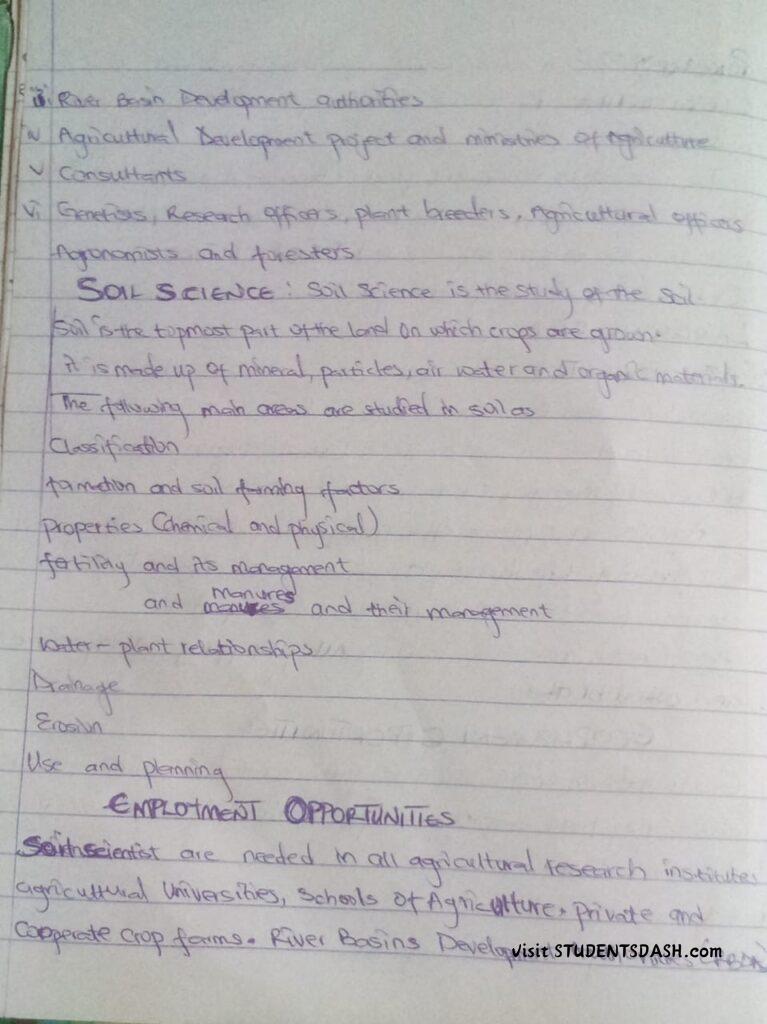 iii. River Basin Development authorities
iv Agricultural Development project and ministries of Agriculture
v Consultants
vi Genetists, Reseach officers, plant breeders, Agricultural officers
Agronomists and foresters
SOIL SCIENCE: Soil Science is the study of the soil.
Soil is the topmost part of the land on which crops are grown.
it is made up of mineral, particles, air water and organic materials.
The following main areas are studied in soil as
Classification
formation and soil forming factors
properties (chemical and physical)
fertility and its management
manures
and manures and their management
Water-plant relationships
Drainage
Erosion
Use and planning
EMPLOYMENT OPPORTUNITIES
Soil scientist are needed in all agricultural research institutes
agricultural Universities, Schools of Agriculture, private and
Cooperate Crop farms. River Basins
visit STUDENTSDASH.com